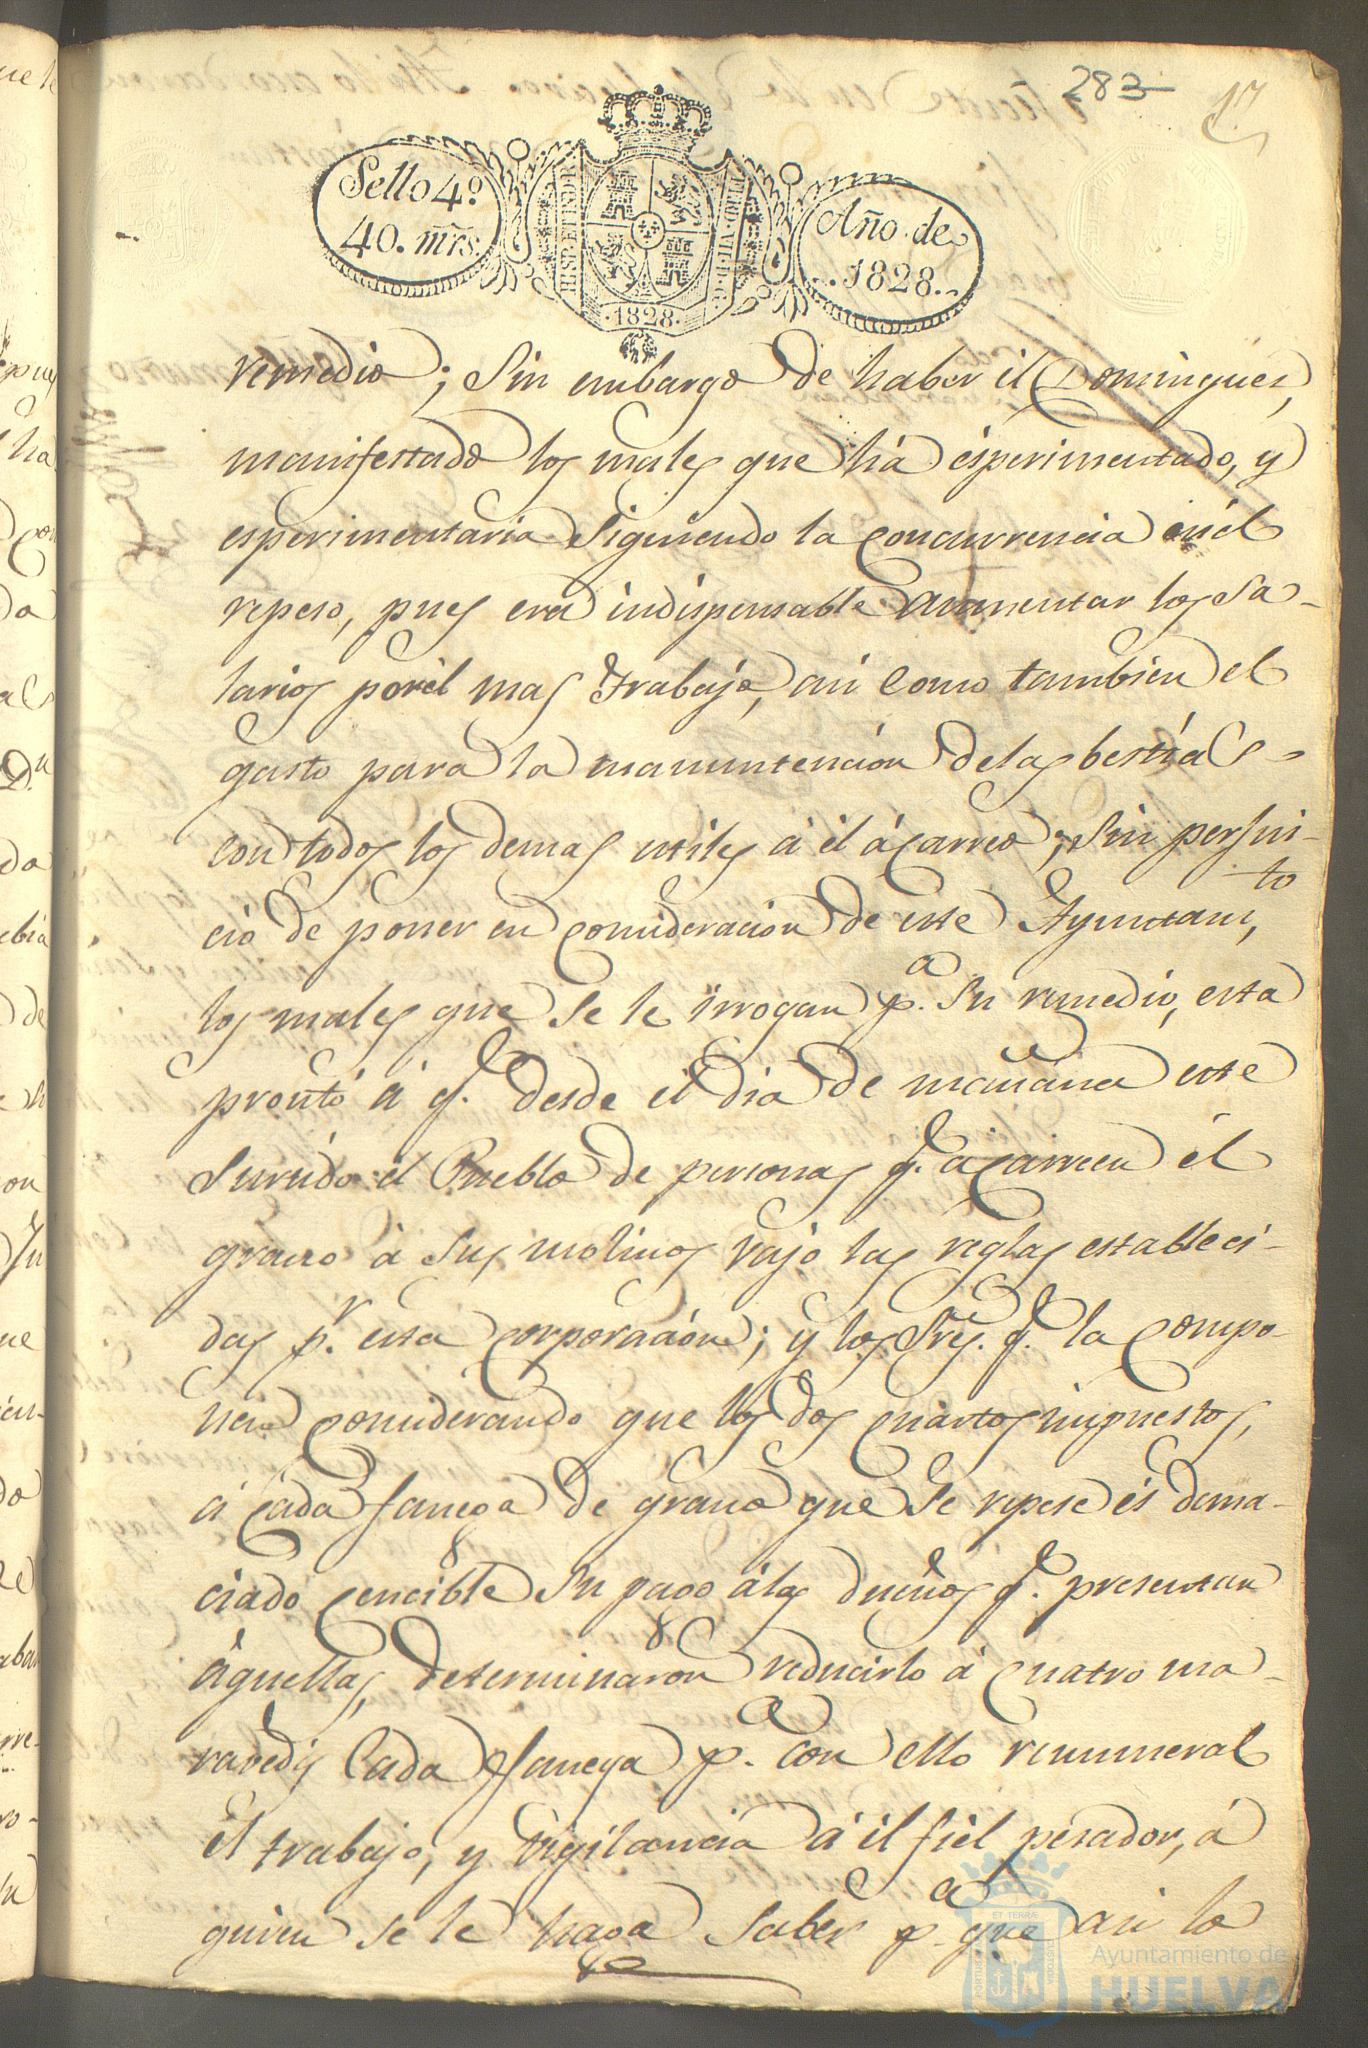 283
17
Sello 4º
40. mrs.
HISP. ET IND. R.
FERD. VII. D. G.
·1828·
Año de
1828.
remedio; Sin embargo de haber él Domingues,
manifestado los males que há ésperimentado, y
esperimentaria siguiendo la concurrencia enel
repeso, pues era indispensable aumentar los sa-
larios porél mas trabajo, asi como tambien el
gasto para la manuntencion delas bestias
con todos los demas utiles á él ácarreo; Sin perjui-
cio de poner en concideracion de este Ayuntamto,
los males que se le irrogan pa. su remedio, esta
prontó á qe. desde el dia de mañana este
surtido el Pueblo de personas qe. acarreen él
grano à sus molinos vajo las reglas estableci-
das pr. esta corporación; y los Sres. qe. la compo-
nen considerando que los dos cuartos impuestos,
á cada fanega de grano que se repese és dema-
ciado cencible su pago álos dueños qe. presentan
áquellas, determinaron reducirlo á cuatro ma-
ravedis cada fanega pa. con ello remuneral
él trabajo, y vigilancia á él fiel pesador, á
quien se le haga saber pa. que asi lo
Ayuntamiento de
HUELVA